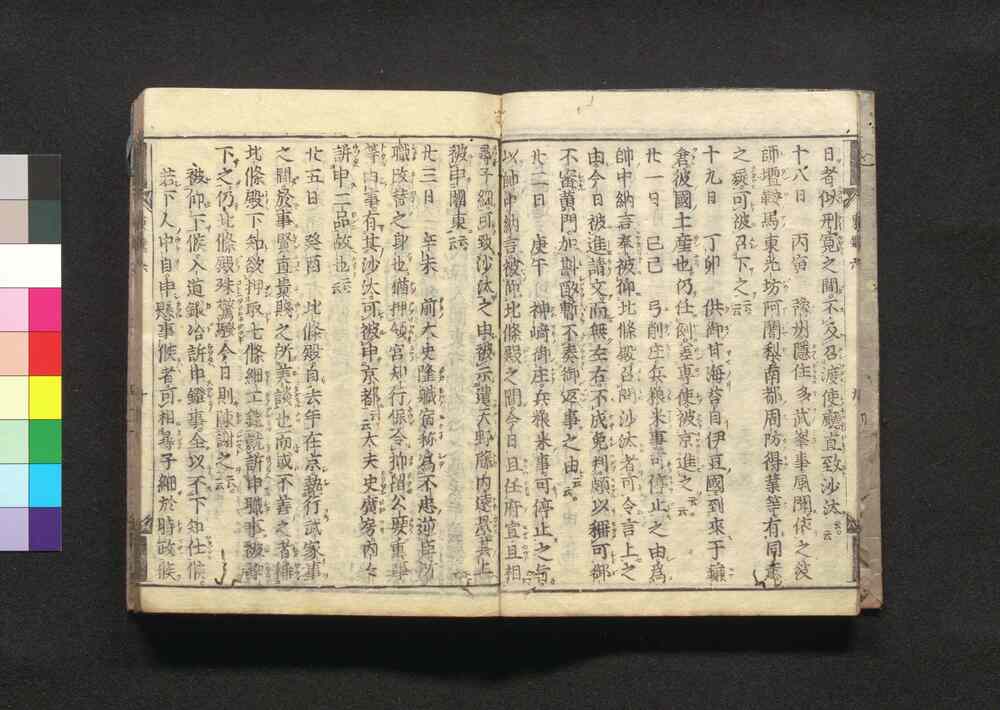 日者似刑寛之間不及召渡使廳直致沙汰云云
十八日 丙寅 豫州隱住多武峯事風聞依之彼
師壇鞍馬東光坊阿闍梨南都周防得業等有同意
之疑可被召下之云云
十九日 丁卯 供御甘海苔自伊豆國到來于鎌
倉彼國土産也仍任例差專使被京進之云云
廿一日 己巳 弓削庄兵粮米事可停止之由爲
帥中納言奉被仰北條殿召問沙汰者可令言上之
由今日被進請文而無左右不成免判頗以細可御
不審黄門加 暫不奏御返事之由云云
廿二日 庚午 神崎御庄兵粮米事可停止之旨
以帥中納言被仰北條殿之間今日且任府宣且相
尋子細可致沙汰之由被示遣天野藤内遠景其上
被申關東云云
廿三日 辛未 前大史隆職宿祢爲不忠
職改替之身也猶押領官 行保令抑留公要重事
等 事有其沙汰可被申京都云云大夫史廣房内々
訴申二品故也云云
廿五日 癸酉 北條殿自去年在京執行武家事
之間於事賢直貴賤之所美談也而或不善之者稱
北條殿下知欲押取七條細工鐙就訴申職事被尋
下之仍北條殿殊驚騒今日則陳謝之云云
被仰下候入道鍛冶訴申鐙事全以不下知仕候
若下人中自申懸事候者可相尋子細於時政候